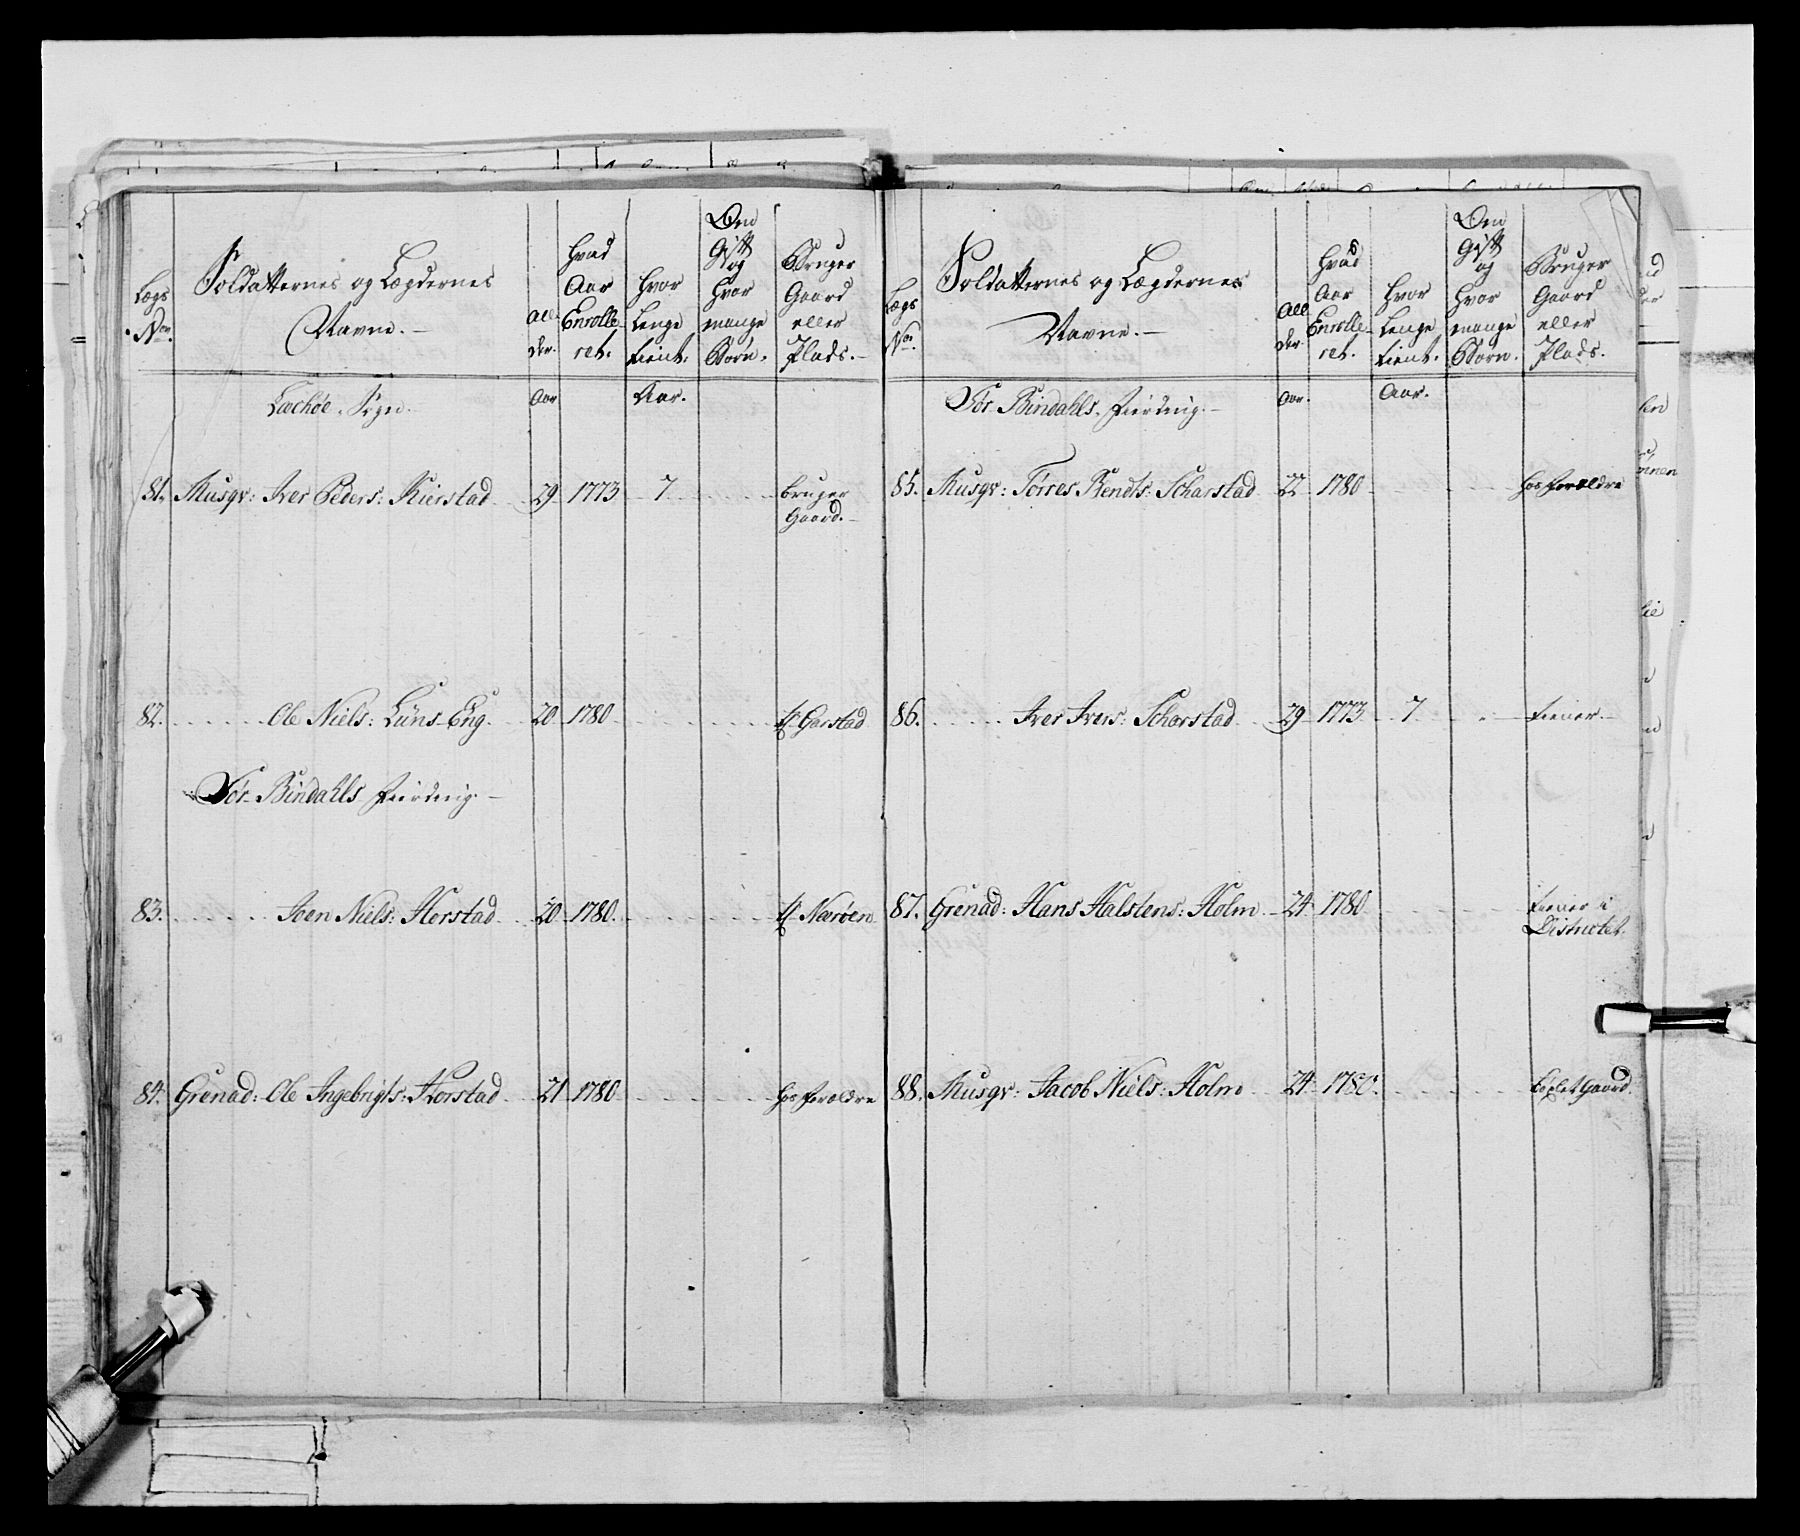 Lægs No.
Soldatternes og Lægdernes
Navne.
All der.
Hvad Aar Enrolleret.
Hvor Lenge tient.
Om Gift og hvor mange Børn.
Bruger Gaard eller Plads.
Leehöe Sogn. Aar Aar.
81. Musqr: Iver Peders: Kierstad 29 1773 7 bruger
Gaard.
82. Ole Niels: Lüns Eng. 20 1780 Garstad
Sör Bindahls Fierding.
83. Joen Niels: Horstad 20 1780 Nærøen
84. Grenad: Ole Ingebrigts: Horstad 21 1780 hos Forældre
Lægs No.
Soldatternes og Lægdernes
Navne.
All der.
Hvad Aar Enrolleret.
Hvor Lenge tient.
Om Gift og hvor mange Børn.
Bruger Gaard eller Plads.
Sör Bindahls Fierding. Aar. Aar.
85. Musqr: Törres Bendts: Scharstad 22 1780 hos Forældre
86. Iver Ivers: Scharstad 29 1773 7 tiener
87. Grenad: Hans Halstens: Holm 24 1780 tiener i
Districtet.
88. Musqr: Jacob Niels: Holm 24 1780 Gaard.